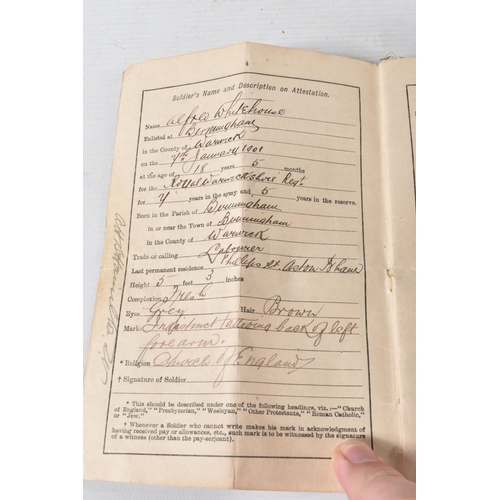 4
Soldier's Name and Description on Attestation.
Name Alfred Whitehouse
Enlisted at Birmingham
in the County of Warwick
on the 7th January 1901
at the age of 18 years 5 months
for the Royal Warwickshire Regt
for 7 years in the army and 5 years in the reserve.
Born in the Parish of Birmingham
in or near the Town of Birmingham
in the County of Warwick
Trade or calling Labourer
Last permanent residence Phillips St Aston B'ham
Height 5 feet 3 inches
Complexion Fresh
Eyes Grey Hair Brown
Marks Indistinct tattooing back of left
forearm.
* Religion Church of England
† Signature of Soldier
* This should be described under one of the following headings, viz.:—"Church
of England," "Presbyterian," "Wesleyan," "Other Protestants," "Roman Catholic,"
or "Jew."
† Whenever a Soldier who cannot write makes his mark in acknowledgment of
having received pay or allowances, etc., such mark is to be witnessed by the signature
of a witness (other than the pay-serjeant).